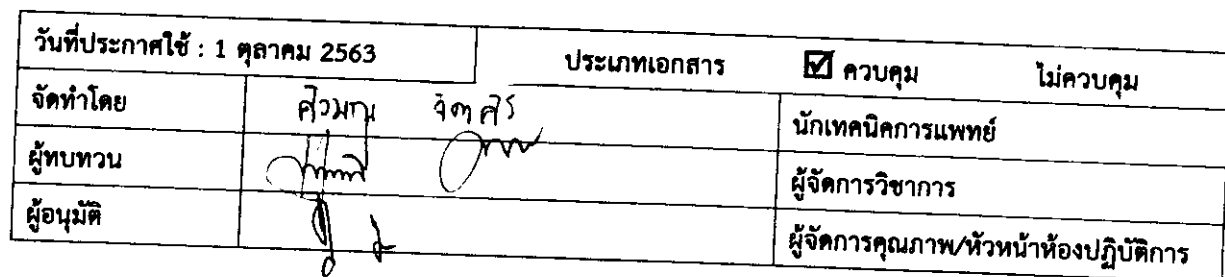 วันที่ประกาศใช้ : 1 ตุลาคม 2563 ประเภทเอกสาร ☑ ควบคุม ไม่ควบคุม
จัดทำโดย นักเทคนิคการแพทย์
ผู้ทบทวน ผู้จัดการวิชาการ
ผู้อนุมัติ ผู้จัดการคุณภาพ/หัวหน้าห้องปฏิบัติการ